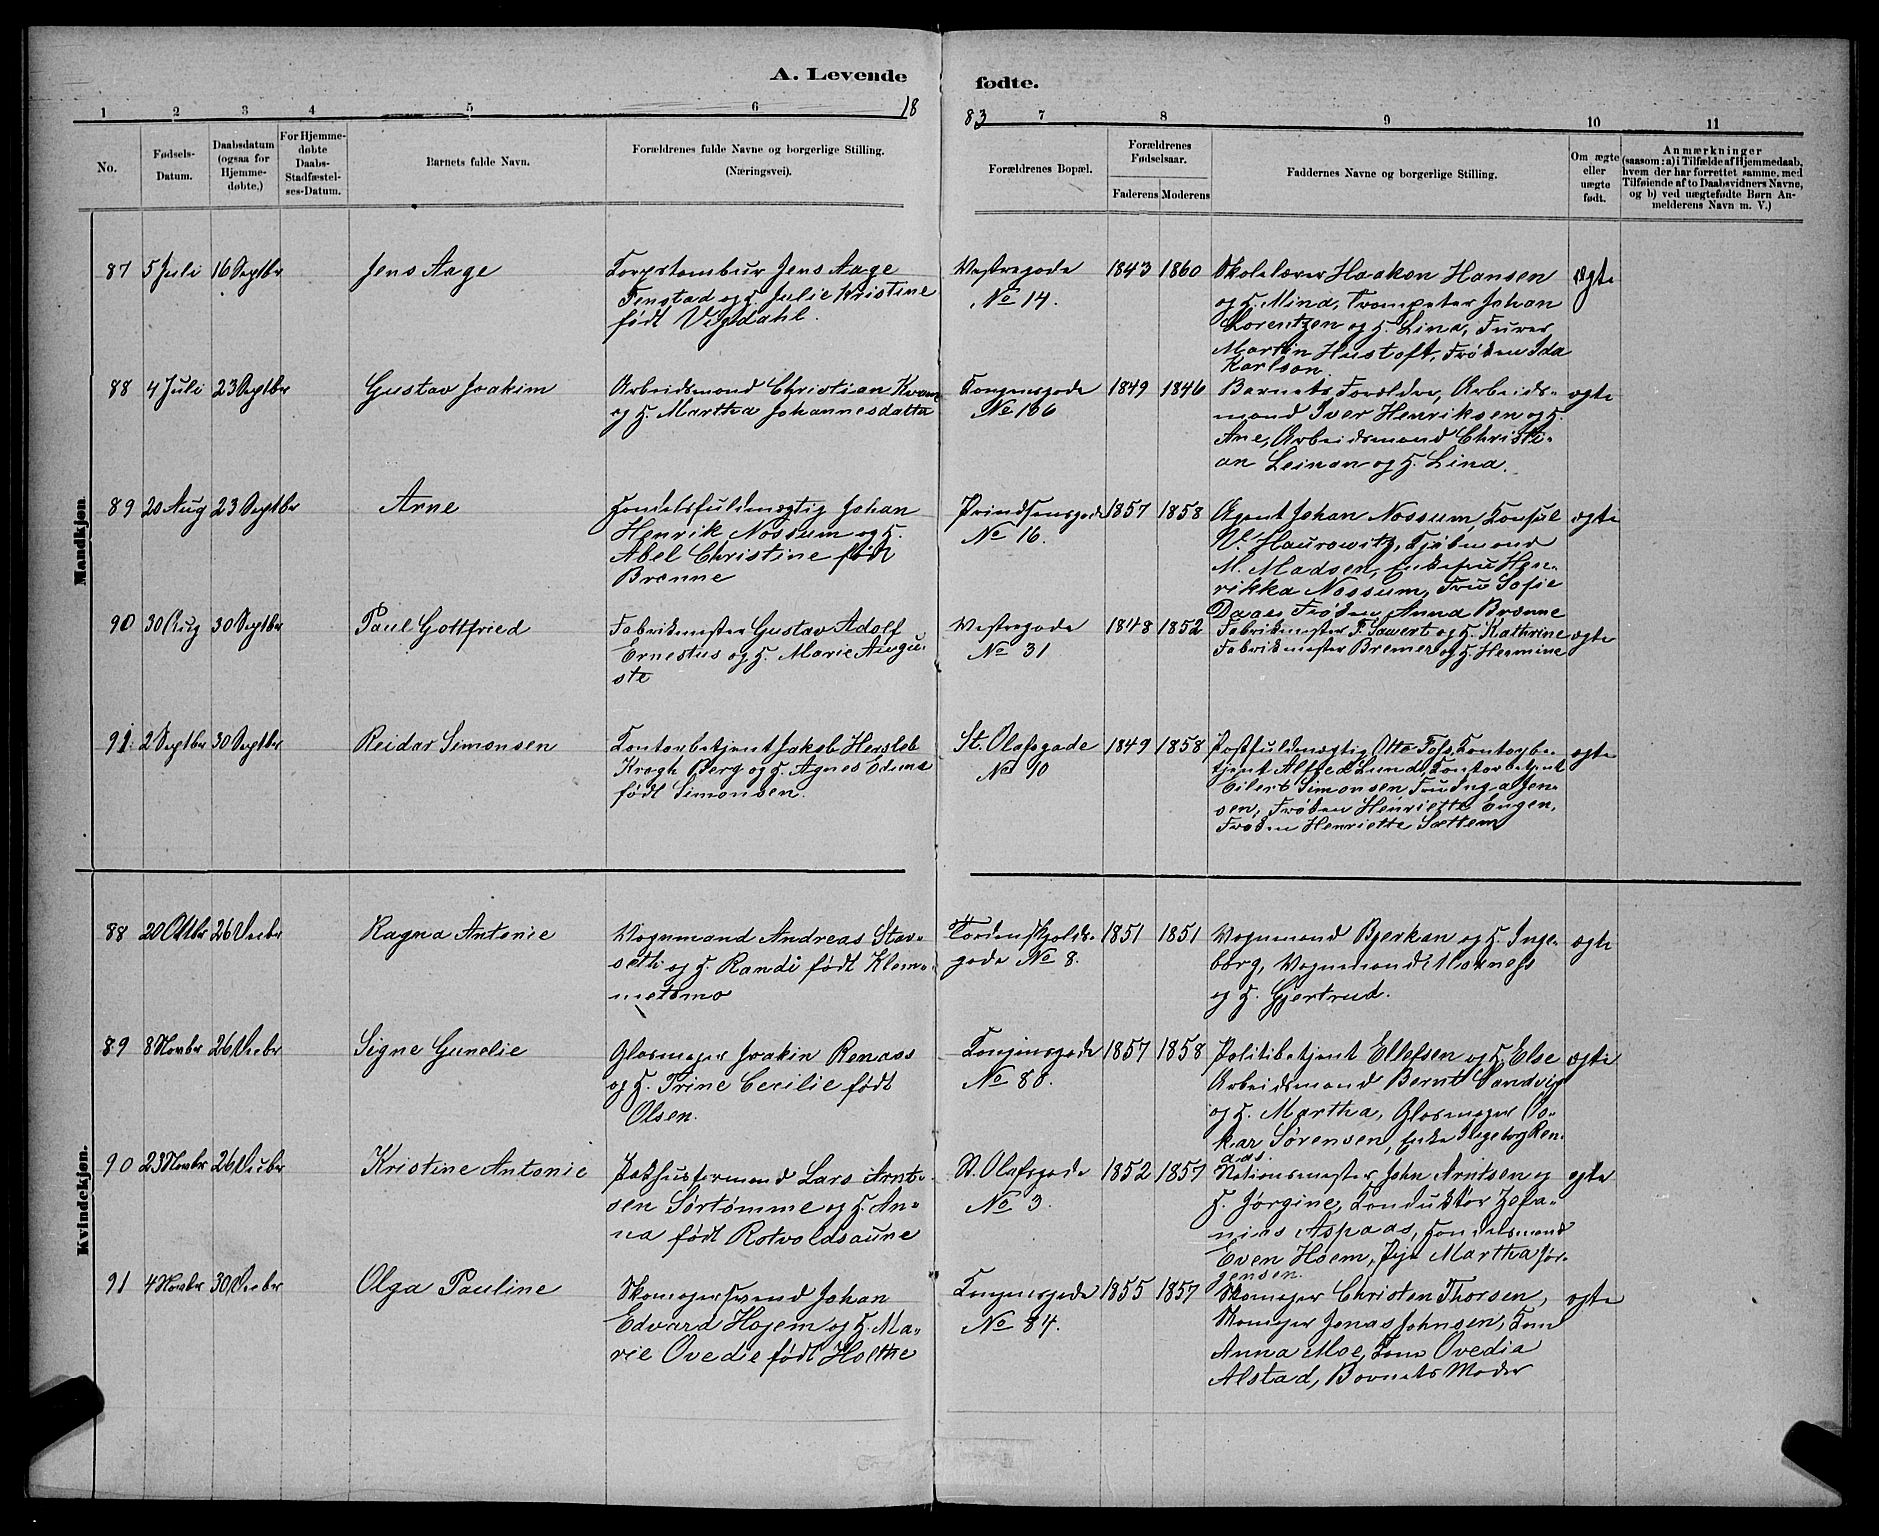 A. Levende fødte.
1883
1 2 3 4 5 6 7 8 9 10 11
No.
Fødsels-Datum.
Daabsdatum (ogsaa for Hjemme-døbte.)
For Hjemme-døbte Daabs-Stadfæstel-ses-Datum.
Barnets fulde Navn.
Forældrenes fulde Navne og borgerlige Stilling. (Næringsvei).
Forældrenes Bopæl.
Forældrenes Fødselsaar.
Faderens Moderens
Faddernes Navne og borgerlige Stilling.
Om ægte eller uægte født.
Anmærkninger
(saasom: a) i Tilfælde af Hjemmedaab,
hvem der har forrettet samme, med
Tilføiende af to Daabsvidners Navne,
og b) ved uægtefødte Børn An-
melderens Navn m. V.)
Mandkjøn
87 5 Juli 16 Septbr Jens Aage
Korpstambur Jens Aage
Fenstad og H. Julie Kristine
født Vigdahl.
Vestregade
No 14.
1843 1860
Skolelærer Haakon Hansen
og H. Mina, Trompeter Johan
Lorentzen og H. Lina, Furer
Martin Hustoft, Frøken Ida
Karlson.
ægte
88 4 Juli 23 Septbr Gustav Joakim
Arbeidsmand Christian Kvam
og H. Martha Johannesdatter
Kongensgade
No 106
1849 1846
Barnets Forældre, Arbeids-
mand Iver Henriksen og H.
Ane, Arbeidsmand Christi-
an Leinan og H. Lina.
ægte
89 20 Aug 23 Septbr Arne
Handelsfuldmægtig Johan
Henrik Nossum og H.
Abel Christine født
Brænne
Prindsensgade
No 16.
1857 1858
Agent Johan Nossum, Konsul
W. Haurowitz, Kjøbmand
M. Madsen, Enkefru Hen-
rikka Nossum, Frue Sofie
Daae, Frøken Anna Brænne
ægte
90 30 Aug 30 Septbr Paul Gottfried
Fabrikmester Gustav Adolf
Ernestus og H. Marie Augu-
ste
Vestregade
No 31
1848 1852
Fabrikmester F. Sauert og H. Kathrine
Fabrikmester Bremer og H. Hermine
ægte
91. 2 Septbr 30 Septbr Reidar Simonsen
Kontorbetjent Jakob Hersleb
Krogh Berg og H. Agnes Edina
født Simonsen.
St. Olafsgade
No 10
1849 1858
Postfuldmægtig Otto Foss, Kontorbe-
tjent Alfred Lund, Kontorbetjent
Eilert Simonsen Fru Inga Jen-
sen, Frøken Henriette Engen,
Frøken Henriette Sættem
ægte
Kvindekjøn.
88 20 Oktbr 26 Decbr Ragna Antonie
Vognmand Andreas Stav-
seth og H. Randi født Klem-
metsmo
Tordenskjolds-
gade No 8.
1851 1851
Vognmand Bjerkan og H. Inge-
borg, Vognmand Moxness
og H. Gjertrud.
ægte
89 8 Novbr 26 Decbr Signe Gunelie
Glasmager Joakin Renaas
og H. Trine Cecilie født
Olsen.
Kongensgade
No 88.
1857 1858
Politibetjent Ellefsen og H. Else
Arbeidsmand Bernt Sandvig
og H. Martha, Glasmager Os-
kar Sørensen, Enke Ingeborg Ren-
aas.
ægte
90 23 Novbr 26 Decbr Kristine Antonie
Pakhusformand Lars Arnt-
sen Sørtømme og H. An-
na født Rotvoldsaune
St. Olafsgade
No 3.
1852 1857
Stationsmester John Arntsen og
H. Jørgine, Konduktør Zefa-
nias Aspaas, Handelsmand
Even Hoem, Pige Martha Jør-
gensen.
ægte
91 4 Novbr 30 Decbr Olga Pauline
Skomagersvend Johan
Edvard Hojem og H. Ma-
rie Ovedie født Holthe
Kongensgade
No 84.
1855 1857
Skomager Christen Thorsen,
Skomager Jonas Johnsen, Kone
Anna Moe, Kone Ovedia
Alstad, Barnets Moder
ægte